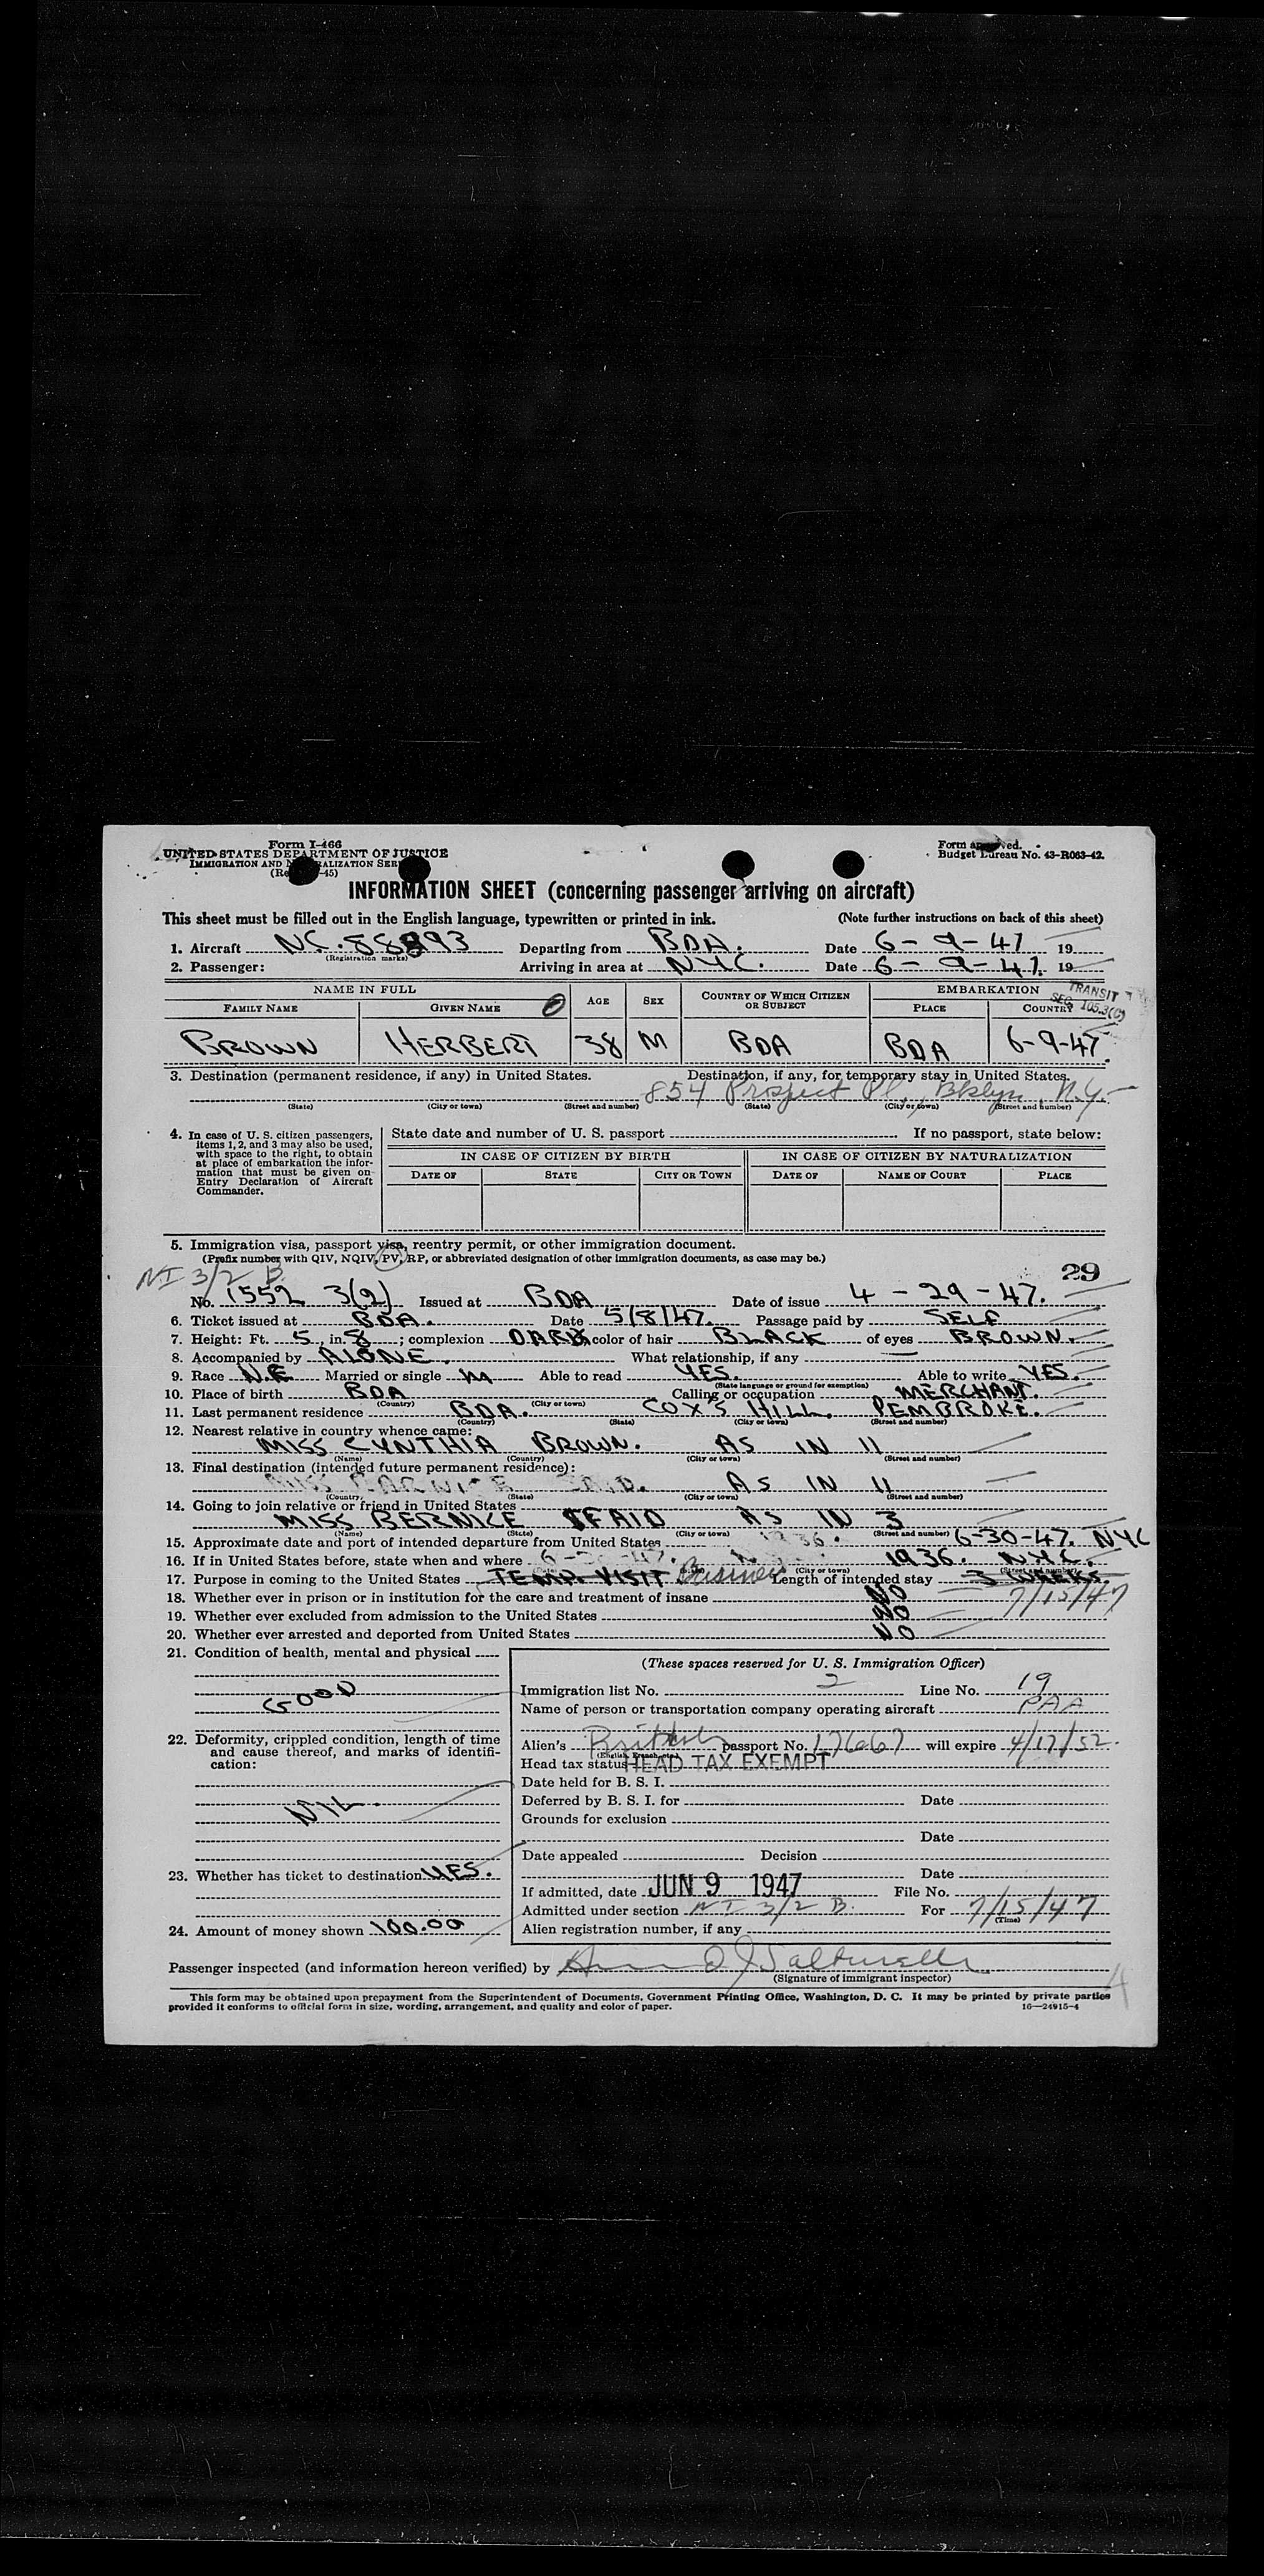 Form I-466
UNITED STATES DEPARTMENT OF JUSTICE
IMMIGRATION AND NATURALIZATION SERVICE
Form approved.
Budget Bureau No. 43-R063-42.
INFORMATION SHEET (concerning passenger arriving on aircraft)
This sheet must be filled out in the English language, typewritten or printed in ink. (Note further instructions on back of this sheet)
1. Aircraft NC. 88893 Departing from BDA. Date 6-9-47 19
(Registration marks)
2. Passenger: Arriving in area at NYC. Date 6-9-47. 19
NAME IN FULL AGE SEX COUNTRY OF WHICH CITIZEN OR SUBJECT EMBARKATION
FAMILY NAME GIVEN NAME PLACE COUNTRY
TRANSIT
SEC. 105.3(C)
BROWN HERBERT 38 M BDA BDA 6-9-47.
3. Destination (permanent residence, if any) in United States. Destination, if any, for temporary stay in United States.
854 Prospect Pl., Bklyn, N.Y.
(State) (City or town) (Street and number) (State) (City or town) (Street and number)
4. In case of U. S. citizen passengers, items 1, 2, and 3 may also be used, with space to the right, to obtain at place of embarkation the information that must be given on Entry Declaration of Aircraft Commander.
State date and number of U. S. passport If no passport, state below:
IN CASE OF CITIZEN BY BIRTH IN CASE OF CITIZEN BY NATURALIZATION
DATE OF STATE CITY OR TOWN DATE OF NAME OF COURT PLACE
5. Immigration visa, passport visa, reentry permit, or other immigration document.
(Prefix number with QIV, NQIV, PV, RP, or abbreviated designation of other immigration documents, as case may be.)
NI 3/2 B 29
No. 1552 3(2) Issued at BDA Date of issue 4-29-47.
6. Ticket issued at BDA. Date 5/8/47. Passage paid by SELF
7. Height: Ft. 5, in 8; complexion DARK color of hair BLACK of eyes BROWN.
8. Accompanied by ALONE. What relationship, if any —
9. Race N.E Married or single M Able to read YES. Able to write YES.
(State language or ground for exemption)
10. Place of birth BDA Calling or occupation MERCHANT.
(Country) (City or town)
11. Last permanent residence BDA. COX'S HILL. PEMBROKE.
(Country) (State) (City or town) (Street and number)
12. Nearest relative in country whence came:
MISS CYNTHIA BROWN. AS IN 11
(Name) (Country) (City or town) (Street and number)
13. Final destination (intended future permanent residence):
AS IN 11
(Country) (State) (City or town) (Street and number)
14. Going to join relative or friend in United States
MISS BERNICE AS IN 3
(Name) (State) (City or town) (Street and number)
15. Approximate date and port of intended departure from United States 6-30-47. NYC
16. If in United States before, state when and where 1936. NYC.
17. Purpose in coming to the United States TEMP. VISIT Business Length of intended stay 3 WEEKS.
7/15/47
18. Whether ever in prison or in institution for the care and treatment of insane NO
19. Whether ever excluded from admission to the United States NO
20. Whether ever arrested and deported from United States NO
21. Condition of health, mental and physical
GOOD
22. Deformity, crippled condition, length of time and cause thereof, and marks of identification:
NIL.
23. Whether has ticket to destination YES.
24. Amount of money shown 100.00
(These spaces reserved for U. S. Immigration Officer)
Immigration list No. 2 Line No. 19
Name of person or transportation company operating aircraft PAA
Alien's British passport No. 17667 will expire 4/17/52.
Head tax status HEAD TAX EXEMPT
Date held for B. S. I.
Deferred by B. S. I. for Date
Grounds for exclusion
Date
Date appealed Decision
Date
If admitted, date JUN 9 1947 File No.
Admitted under section NI 3/2 B. For 7/15/47
(Time)
Alien registration number, if any
Passenger inspected (and information hereon verified) by
(Signature of immigrant inspector)
This form may be obtained upon prepayment from the Superintendent of Documents, Government Printing Office, Washington, D. C. It may be printed by private parties
provided it conforms to official form in size, wording, arrangement, and quality and color of paper. 16—24915-4